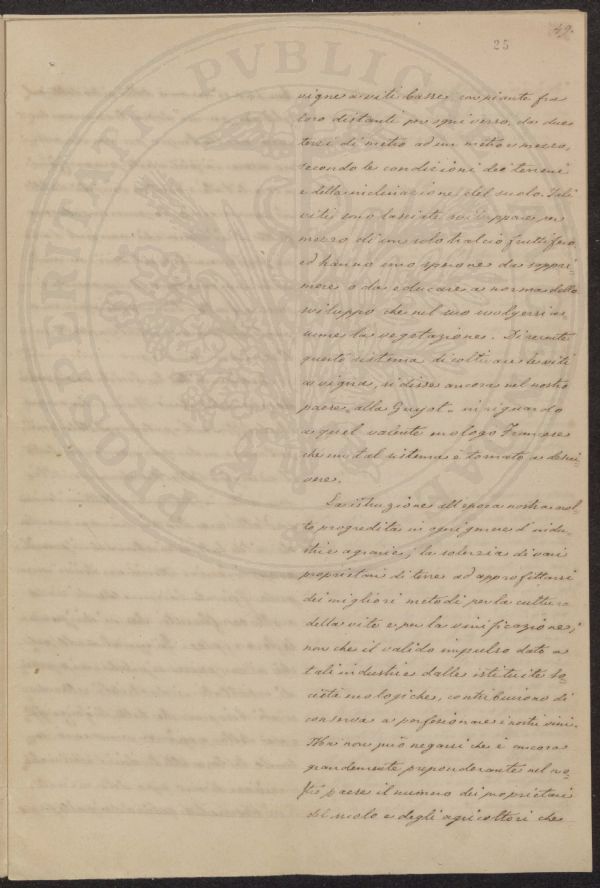 49.
25
PROSPERITATI PUBLICAE
vigne a viti basse, con piante fra
loro distanti per ogni verso, da due
terzi di metro ad un metro e mezzo,
secondo le condizioni dei terreni
e della inclinazione del suolo. Tali
viti sono lasciate sviluppare per
mezzo di un solo tralcio fruttifero,
ed hanno uno sperone da soppri=
mere o da educare a norma dello
sviluppo che nel suo svolgersi as
sume la vegetazione. Di recente
questo sistema di coltivare le viti
a vigna, si disse ancora nel nostro
paese, alla Guyot, in riguardo
a quel valente enologo Francese
che un tal sistema è tornato a descri=
vere.
La istruzione all'epoca nostra mol=
to progredita in ogni genere d'indu=
strie agrarie; la solerzia di vari
proprietari di terre ad approfittarsi
dei migliori metodi per la cultura
della vite e per la vinificazione;
non che il valido impulso dato a
tali industrie dalle istituite So=
cietà enologiche, contribuirono di
conserva a perfezionare i nostri vini.
Ma non può negarsi che è ancora
grandemente preponderante nel no=
stro paese il numero dei proprietari
del suolo e degli agricoltori che